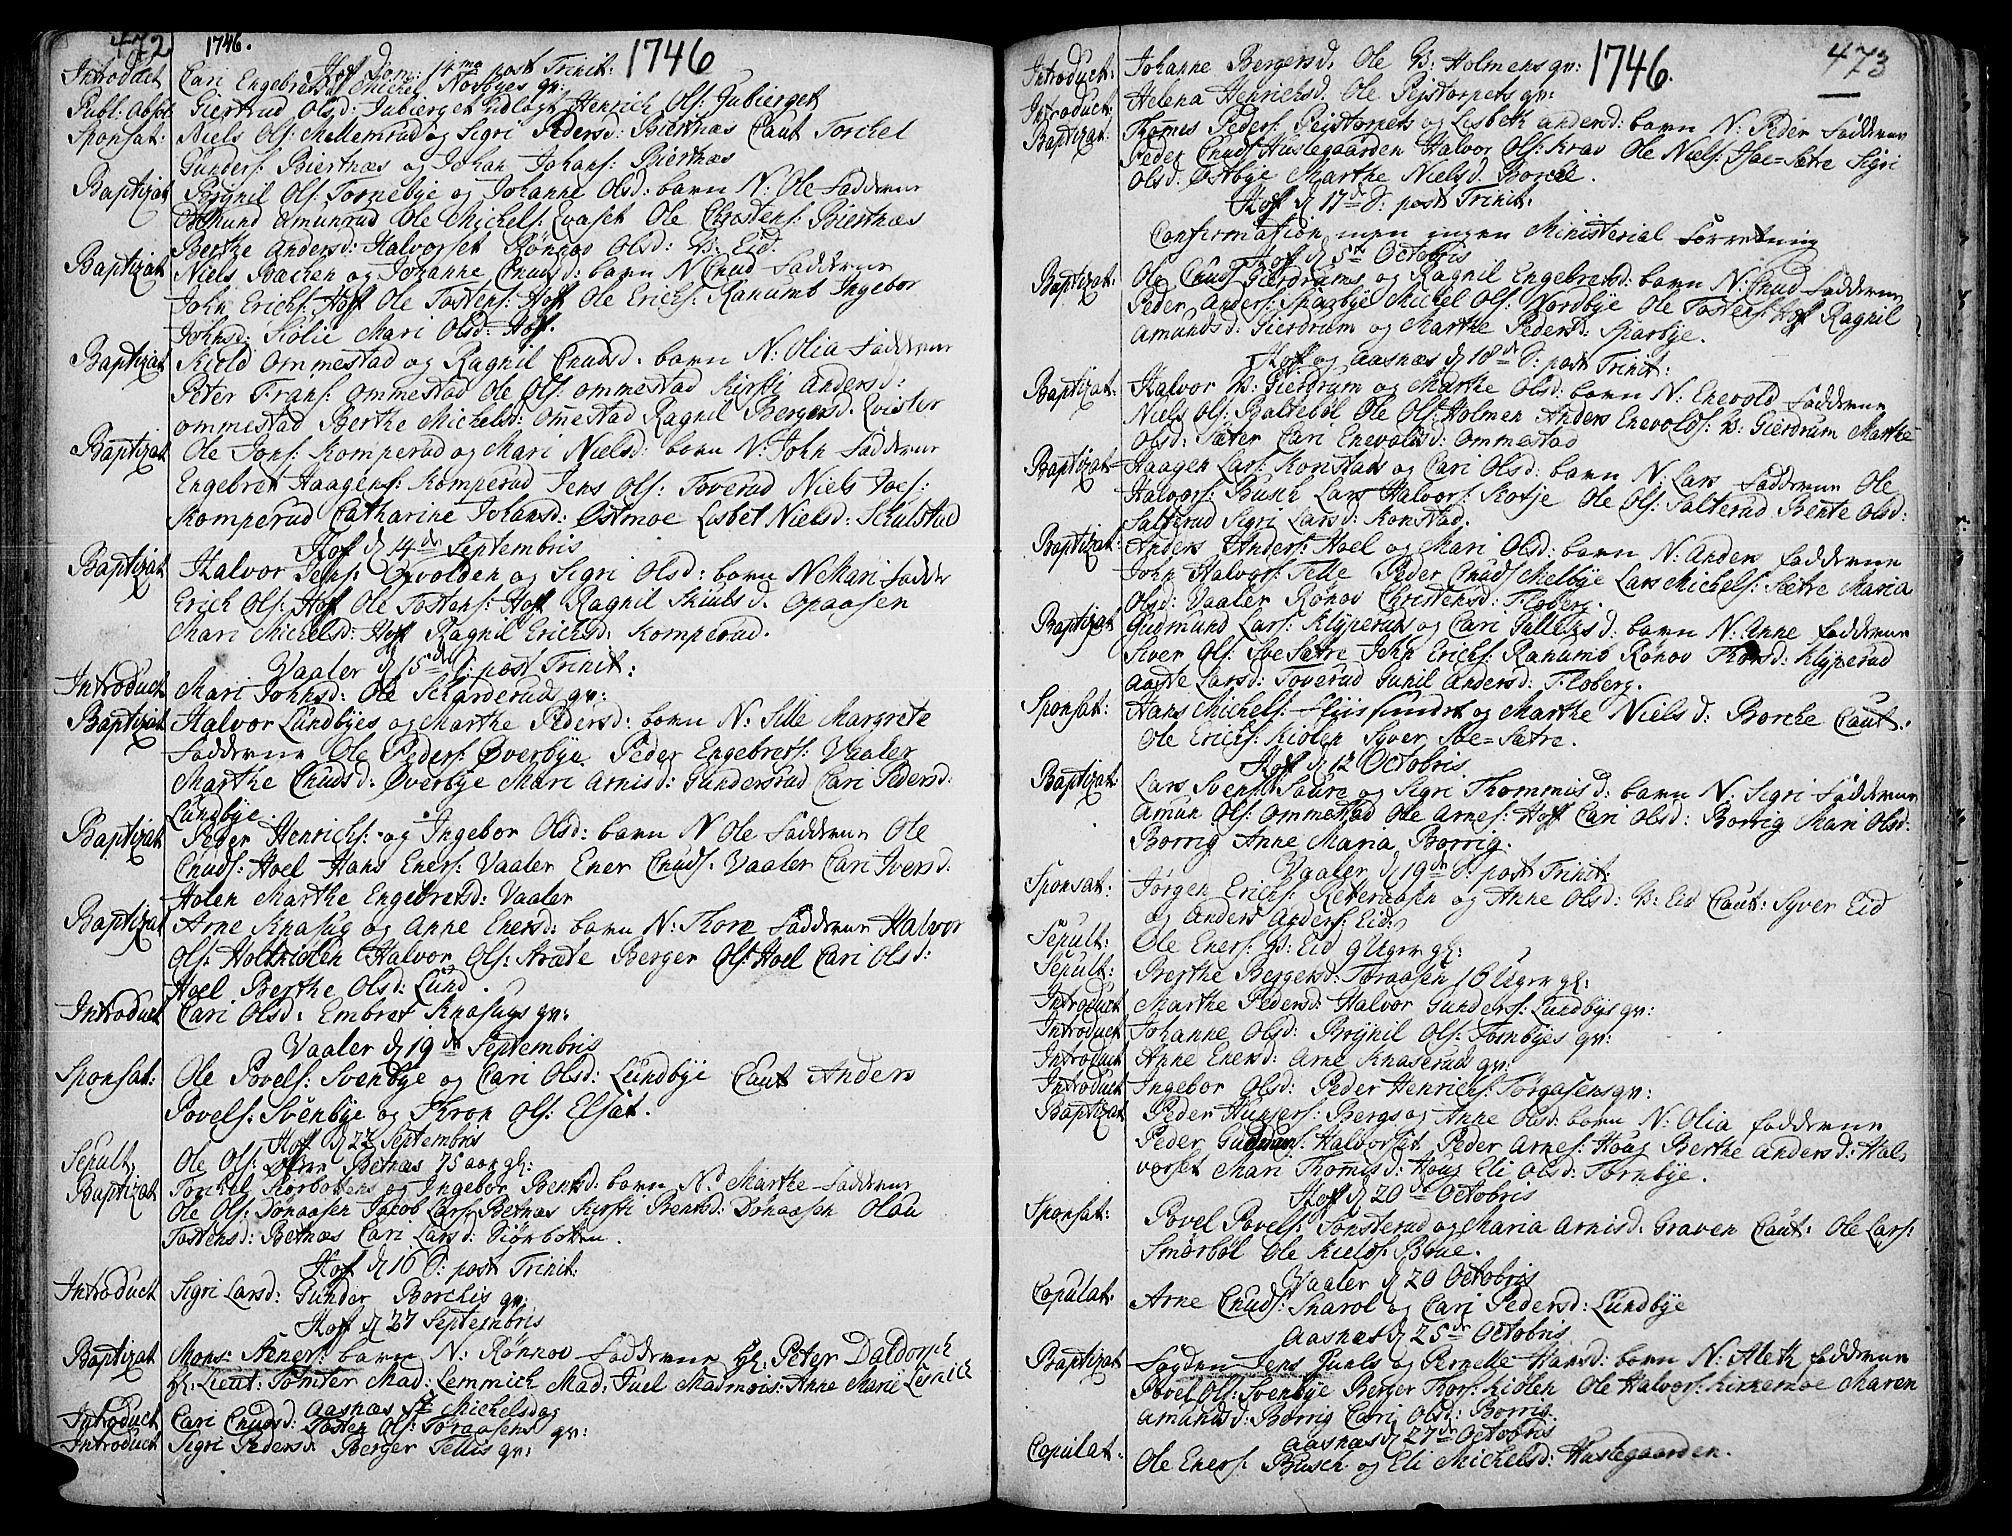 472 1746. 1746
Hoff Dom: 14ma post Trinit:
Introduct Cari Engebretsd: Michel Norbyes qv:
Publ: Absol: Giertrud Olsd: Jubierget Henrich Ols: Jubierget
Sponsat: Niels Ols: Mellemrud og Sigri Pedersd: Biertnæs Caut Torchel
Gunders: Biertnæs og Johan Johans: Biertnæs
Baptizat Brynil Ols: Tornebye og Johanne Olsd: barn N: Ole Fadderne
Amund Amunrud Ole Michels: Evaset Ole Christens: Biertnæs
Berthe Andersd: Halvorset Rønnov Olsd: V: Eid.
Baptizat Niels Bachen og Johanne Cnudsd: barn N Cnud Fadderne
John Erichs: Hoff Ole Tostens: Hoff Ole Erichs: Ranumb Ingebor
Johnsd: Skolie Mari Olsd: Hoff.
Baptizat Kield Ommestad og Ragnil Cnudsd. barn N: Olia Fadderne
Peter Frans: Ommestad Ole Ols: Ommestad Kirsti Andersd:
Ommestad Berthe Michelsd: Omestad Ragnil Bergersd. Qvister
Baptizat Ole Jons: Komperud og Mari Nielsd: barn N: John Fadderne
Engebret Haagens: Komperud Jens Ols: Toverud Niels Joes:
Komperud Catharine Johansd: Østmoe Lisbet Nielsd: Skulstad
Hoff d 14de Septembris
Baptizat Halvor Jens: Qvolden og Sigri Olsd: barn N Mari Fadder
Erich Ols: Hoff Ole Tostens: Hoff Ragnil Skulsd. Opaasen
Mari Michelsd: Hoff Ragnil Erichsd: Komperud.
Vaaler d 15de D: post Trinit:
Introduct Mari Johnsd: Ole Skarderuds qv:
Baptizat Halvor Lundbyes og Marthe Pedersd: barn N: Sille Margrete
Fadderne Ole Peders: Øverbye Peder Engebrets: Vaaler
Marthe Cnudsd: Øverbye Mari Arnisd: Gundersrud Cari Pedersd:
Lundbye.
Baptizat Peder Henrichs: og Ingebor Olsd: barn N Ole Fadderne Ole
Cnuds: Hoel Hans Eners: Vaaler Ener Cnuds: Vaaler Cari Iversd:
Holen Marthe Engebretsd: Vaaler
Baptizat Arne Knasug og Anne Enersd: barn N: Thore Fadderne Halvor
Ols: Holtkiølen Halvor Ols: Aræte Berger Ols: Hoel Cari Olsd:
Hoel Berthe Olsd: Lund.
Introduct Cari Olsd: Embret Knasugs qv:
Vaaler d 19de Septembris
Sponsat: Ole Povels: Svenbye og Cari Olsd: Lundbye Caut Anders
Povels: Svenbye og Thron Ols: Elsæt.
Hoff d 22 Septembris
Sepult. Ole Ols: Betnæs 75 aar gl:
Baptizat Torchel Kiørbotens og Ingebor Bentsd: barn N: Marthe Fadderne
Ole Ols: Dønaasen Jacob Lars: Betnæs Kirsti Bentsd: Dønaasen Olau
Tostensd: Betnæs Cari Larsd: Siørbotten.
Hoff d 16 D: post Trinit:
Introduct Sigri Larsd: Gunder Borchis qv:
Hoff d 27 Septembris
Baptizat Mons: Steners: barn N: Rønnov Fadderne Hr: Peter Daldorph
Hr: Lieut: Tomter Mad: Lemmich Mad: Juel Mamois: Anne Marie Lemich
Aasnæs St Michelsdag
Introduct Cari Cnudsd: Tosten Ols: Toraasens qv:
Introduct Sigri Pedersd: Berger Tellis qv:
1746. 473
Introduct: Johanne Bergersd: Ole V: Holmens qv:
Introduct Helena Henrichsd: Ole Peistorpets qv:
Baptizat: Thomes Peders: Peistorpets og Lisbeth Andersd: barn N: Peder Fadderne
Peder Cnuds Huslegaarden Halvor Ols: Krav Ole Niels: Soe-Sætre Sigri
Olsd: Østbye Marthe Nielsd: Borche.
Hoff d 17de D: post Trinit:
Confirmation men ingen Ministerial Forretning
Hoff d 5te Octobris
Baptizat: Ole Cnuds: Gierdrums og Ragnil Engebretsd: barn N: Cnud Fadderne
Peder Anders: Sparbye Michel Ols: Nordbye Ole Tostens: Hoff Ragnil
Amundsd: Gierdrum og Marthe Pedersd: Sparbye.
Hoff og Aasnæs d 18de D: post Trinit:
Baptizat: Halvor V: Gierdrum og Marthe Olsd: barn N: Enevold Fadderne
Niels Ols: Baltebøl Ole Ols: Holmen Anders Enevolds: V: Gierdrum Marthe
Olsd: Sæter Cari Enevoldsd: Ommestad
Baptizat Haagen Lars: Konstads og Cari Olsd: barn N: Lars Fadderne Ole
Halvors: Busch Lars Halvors: Kotje Ole Ols: Salterud Bente Olsd:
Salterud Sigri Larsd: Konstad.
Baptizat: Anders Anders: Hoel og Mari Olsd: barn N: Anders Fadderne
John Halvors: Telle Peder Cnuds Melbye Lars Michels: Sætre Maria
Olsd: Vaaler Rønov Christensd: Floberg.
Baptizat Gudmund Lars: Klyperuds og Cari Tallefsd: barn N: Anne Fadderne
Siver Ols: Soe Sætre John Erichs: Ranumb Rønov Thorsd: Klyperud
Aaste Larsd: Toverud Gunil Andersd: Floberg.
Sponsat: Hans Michels: og Marthe Nielsd: Borche Caut:
Ole Erichs: Kiølen Syver Soe-Sætre.
Hoff d 12 Octobris
Baptizat: Lars Svens: Saure og Sigri Thommisd: barn N: Sigri Fadderne
Amun Ols: Ommestad Ole Arnes: Hoff Cari Olsd: Borrig Mari Olsd:
Borrig Anne Maria Borrig.
Vaaler d 19de D: post Trinit:
Sponsat: Jørgen Erichs: Reveraasen og Anne Olsd: V: Eid Caut: Syver Eid
og Anders Anders: Eid
Sepult: Ole Eners: V: Eid 9 Uger gl:
Sepult: Berthe Bergersd: Toraasen 16 Uger gl:
Introduct Marthe Pedersd: Halvor Gunders: Lundbys qv:
Introduct Johanne Olsd: Brynil Ols: Tornbyes qv:
Introduct Anne Enersd: Arne Knaseruds qv:
Introduct Ingebor Olsd: Peder Henrichs: Torgasens qv:
Baptizat Peder Hunsers: Bergs og Anne Olsd: barn N: Olia Fadderne
Peder Gudmns: Halvorset Peder Arnes: Houg Berthe Andersd: Hal-
vorset Mari Thomisd: Houg Eli Olsd: Tornbye.
Hoff d 20de Octobris
Sponsat: Povel Povels: Tonsterud og Maria Arnisd: Graven Caut: Ole Lars:
Smørbøl Ole Kields: Boue.
Vaaler d 20 Octobris
Copulat: Arne Cnuds: Snarol og Cari Pedersd: Lundbye
Aasnæs d 25de Octobris
Baptizat Fogden Jens Juels og Pernelle Hansd: barn N: Aleth Fadderne
Povel Ols: Svenbye Berger Thors: Kiølen Ole Halvors: Kirkemoe Maren
Amundsd: Borrig Cari Olsd: Borrig.
Aasnæs d 27de Octobris
Copulat: Ole Eners: Busch og Eli Michelsd: Huslegaarden.